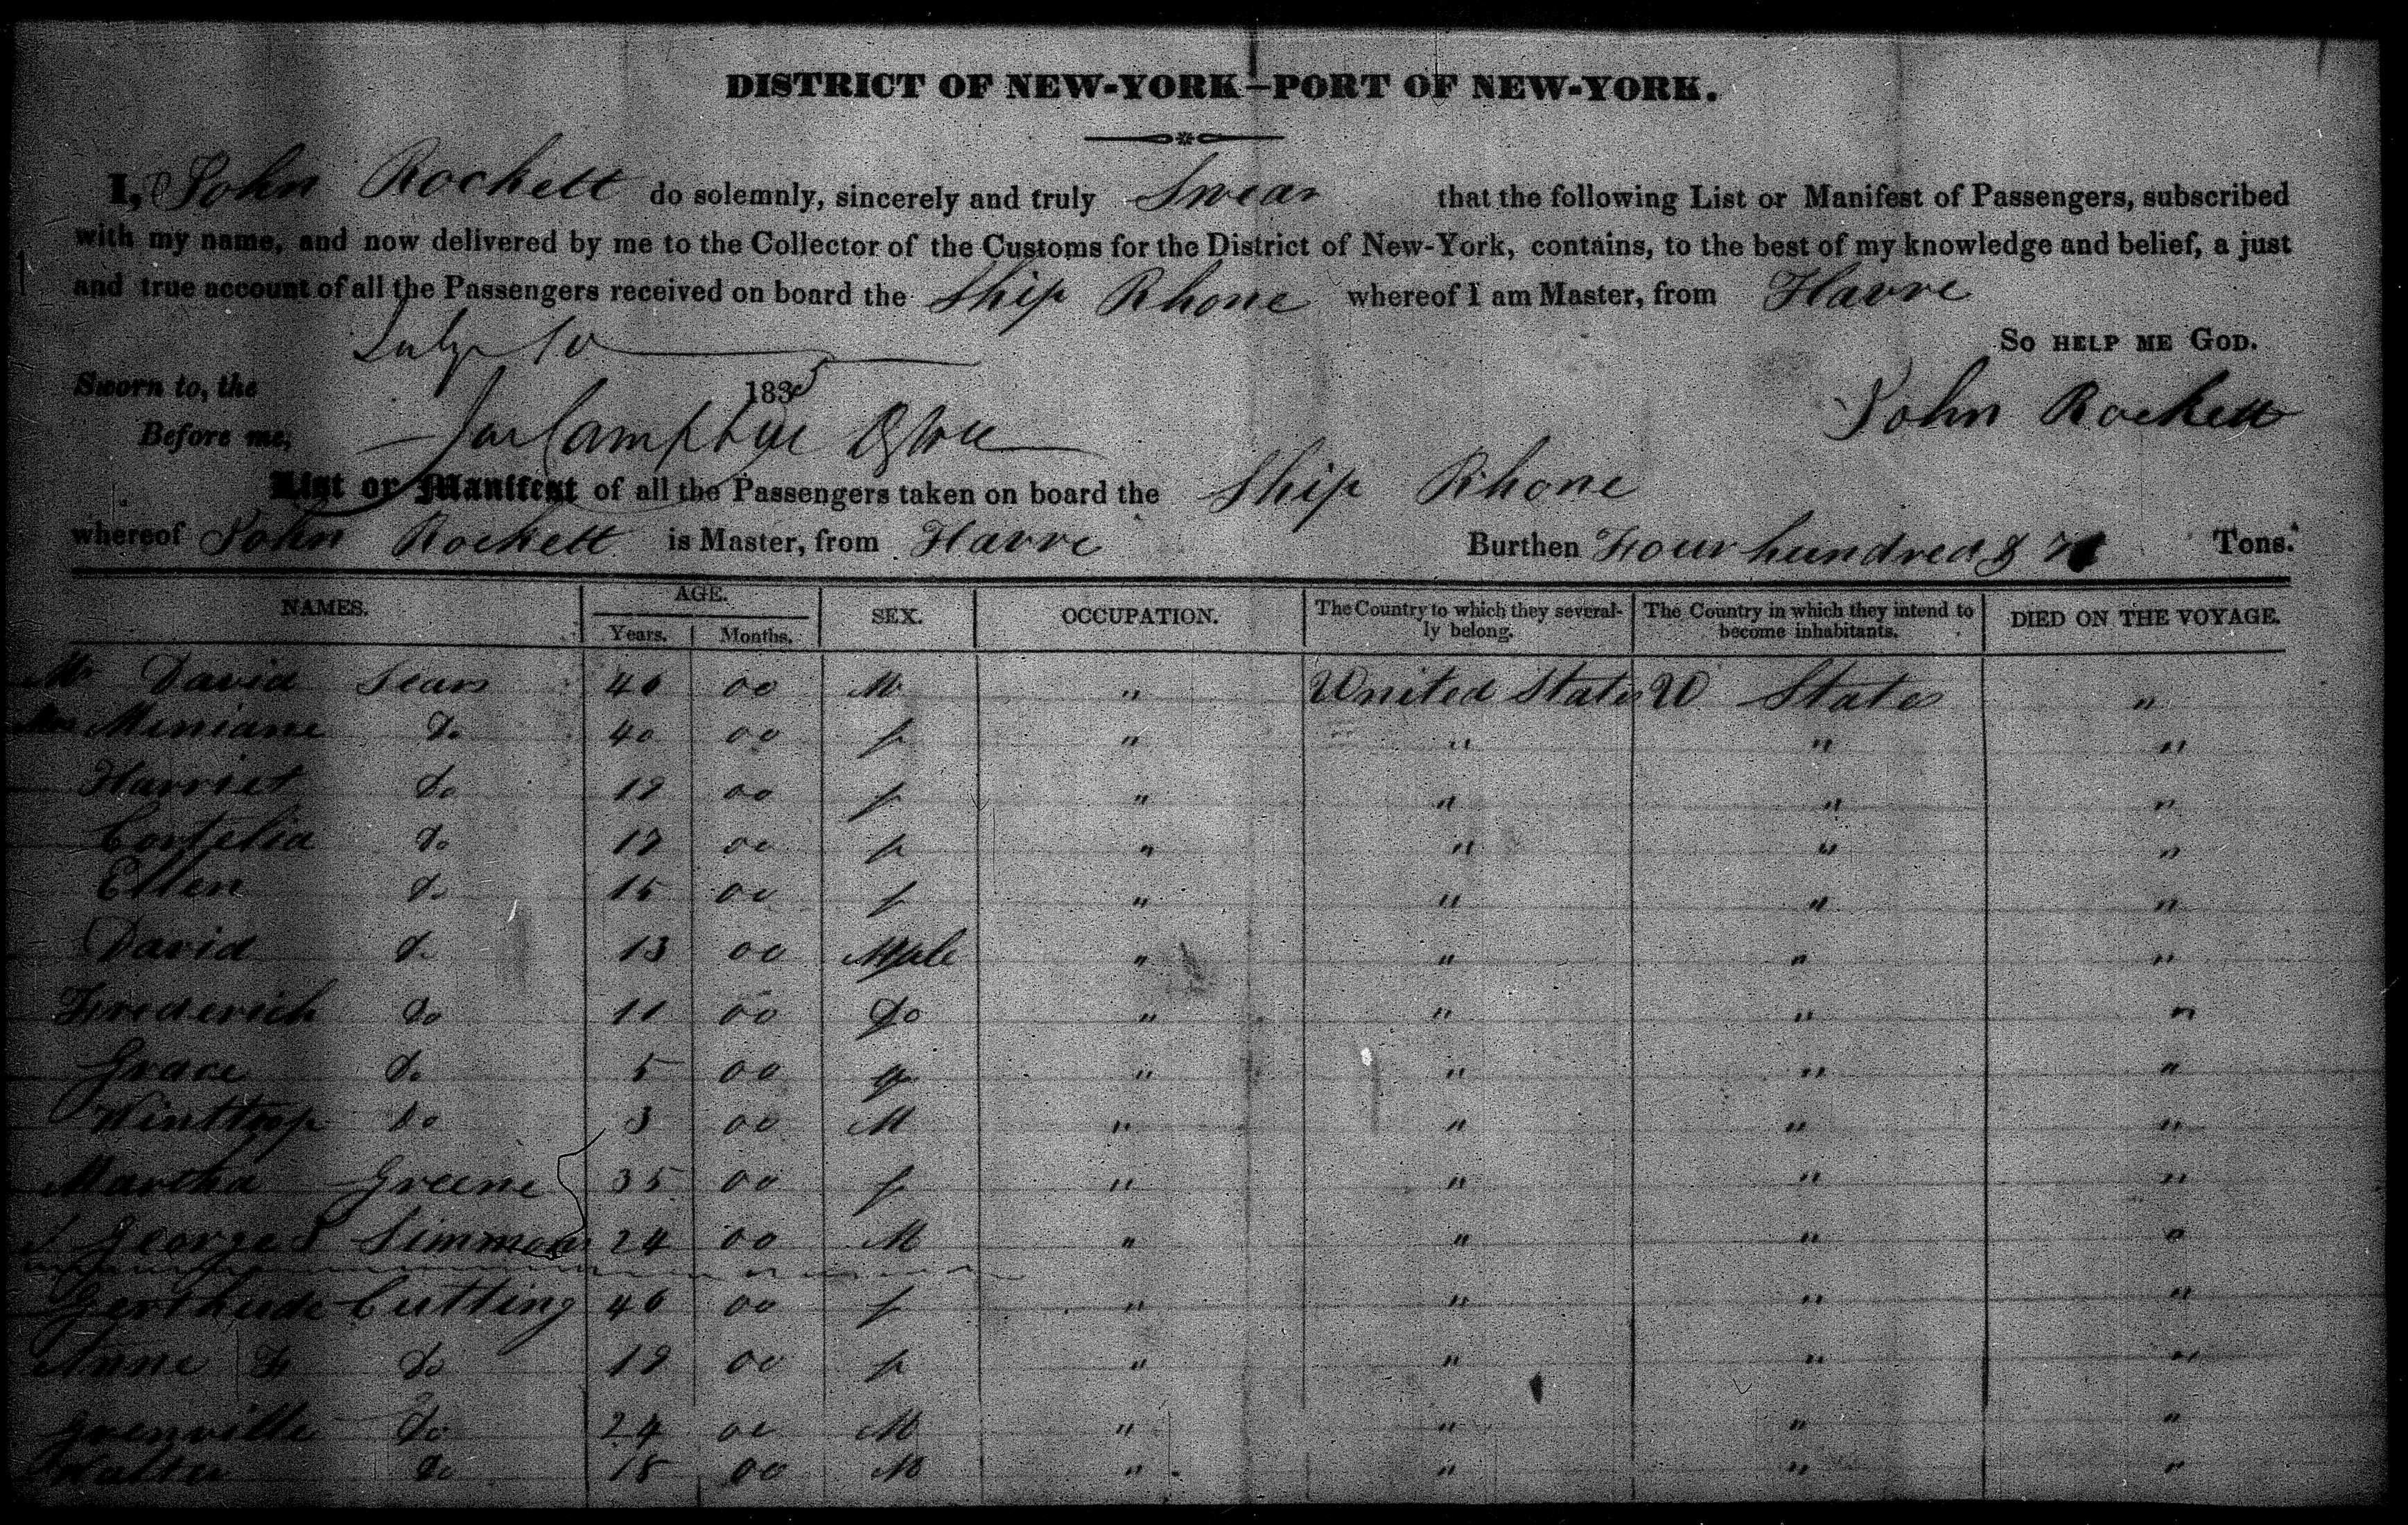 DISTRICT OF NEW-YORK—PORT OF NEW-YORK.
I, John Rockett do solemnly, sincerely and truly Swear that the following List or Manifest of Passengers, subscribed
with my name, and now delivered by me to the Collector of the Customs for the District of New-York, contains, to the best of my knowledge and belief, a just
and true account of all the Passengers received on board the Ship Rhone whereof I am Master, from Havre
So HELP ME GOD.
July 10
Sworn to, the 1835
John Rockett
Before me,
List or Manifest of all the Passengers taken on board the Ship Rhone
whereof John Rockett is Master, from Havre Burthen Four hundred & Tons.
NAMES. AGE. SEX. OCCUPATION. The Country to which they several- The Country in which they intend to DIED ON THE VOYAGE.
Years. Months. ly belong. become inhabitants.
Mr David Sears 46 00 M " United States U States "
Mrs Miniane Do 40 00 f " " " "
Harriet Do 00 f " " " "
Cornelia Do 00 f " " " "
Ellen Do 15 00 f " " " "
David Do 13 00 Male " " " "
Frederich Do 11 00 Do " " " "
Grace Do 5 00 " " " "
Winthrop Do 3 00 M " " " "
Martha Greene 35 00 f " " " "
George Simmons 24 00 M " " " "
Gerthude Cutting 46 00 f " " " "
Anne F Do 00 f " " " "
Grenville Do 24 00 M " " " "
Walter Do 18 00 M " " " "